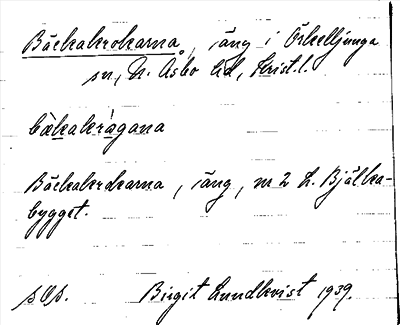 Bäckakrokarna, äng i Örkelljunga
sn, N. Åsbo hd, Krist. l.
bàkakrågana
Bäckakrokarna, äng, nr 2 L. Bjälka-
bygget.
s Os. Birgit Lundkvist 1939.